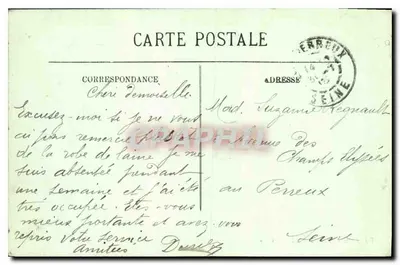 CARTE POSTALE
CORRESPONDANCE
ADRESSE
PERREUX
SEINE
Chère demoiselle
Excusez-moi si je ne vous
ai pas remercié
de la robe de laine je me
suis absentée pendant
une semaine et j'ai été
très occupée. Etes-vous
mieux portante et avez-vous
repris votre service
amitiés
Mad. Suzanne Regnault
Avenue des
Champs Elysées
au Perreux
Seine